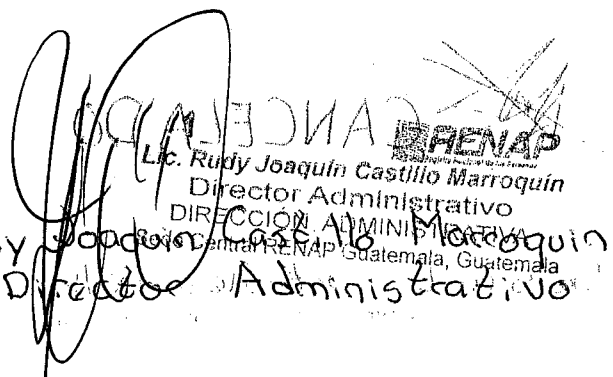 CANCELADO
RENAP
Registro Nacional de las Personas
Lic. Rudy Joaquín Castillo Marroquín
Director Administrativo
DIRECCIÓN ADMINISTRATIVA
Sede Central RENAP Guatemala, Guatemala
y Joaquin Castillo Marroquin
Director Administrativo